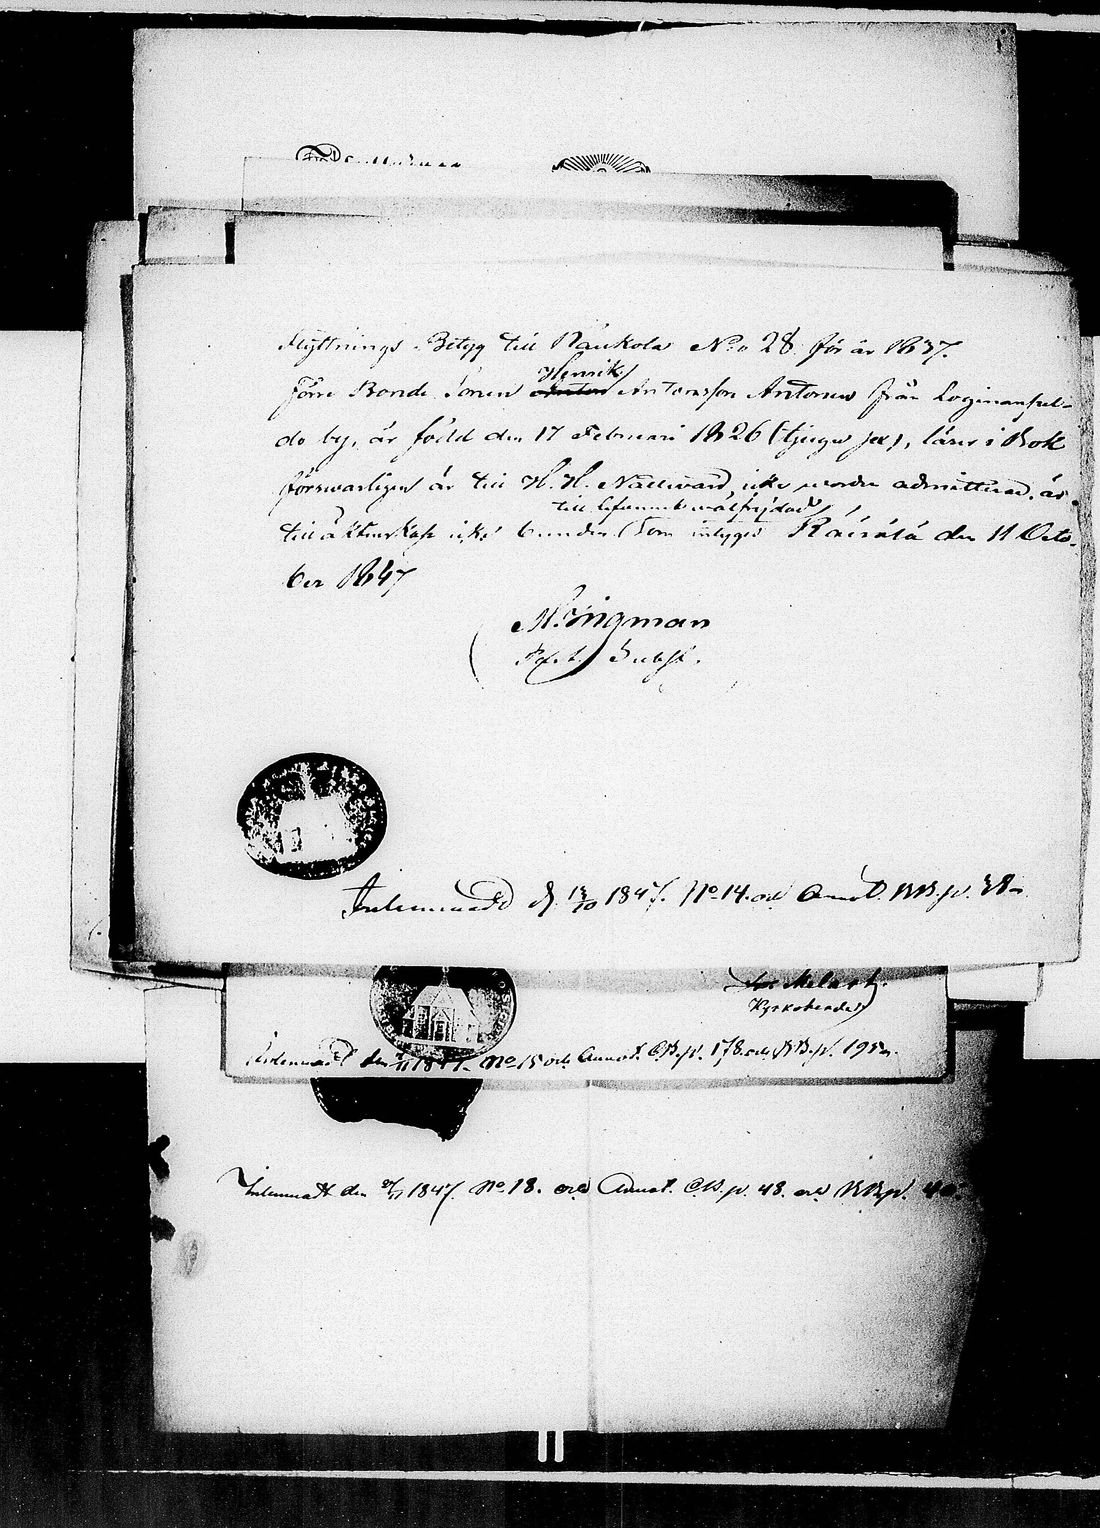 Flyttnings-Betyg till Räukola No 28 för år 1847.
Förre Bonde Sonen Henrik Antonsson Antonen från Loginanpel-
do by, är född den 17 Februari 1826 (tjugu sex), läser i Bok
försvarligen är till H. H. Nattvard icke worden admitterad, är
till äktenskap icke bunden, till lefvernet wälfrejdad, Som intygas Räisälä den 11 Octo-
ber 1847
M. Wigman
Past. Subst.
Inlemnadt d. 13/10 1847. No 14. och Annot. BB. p. 38
Kyrkoherde
Inlemnadt den 1847. No 15 och Annot. CB. p. 178. och BB. p. 195
Inlemnadt den 1847. No 18. och Annot. CB. p. 48. och BB. p.